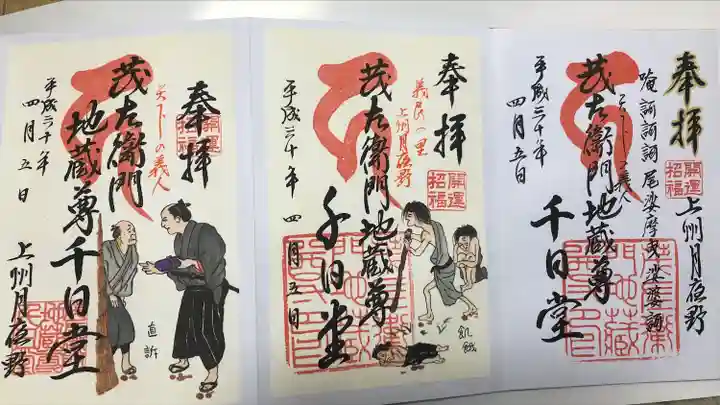 奉拝
開運
招福
天下の義人
茂左衛門
地蔵尊千日堂
平成三十年
四月五日
上州月夜野
直訴
奉拝
開運
招福
義民の里
上州月夜野
茂左衛門地蔵尊
千日堂
平成三十年四月五日
飢餓
奉拝
開運
招福
上州月夜野
天下の義人
茂左衛門地蔵尊
千日堂
平成三十年
四月五日